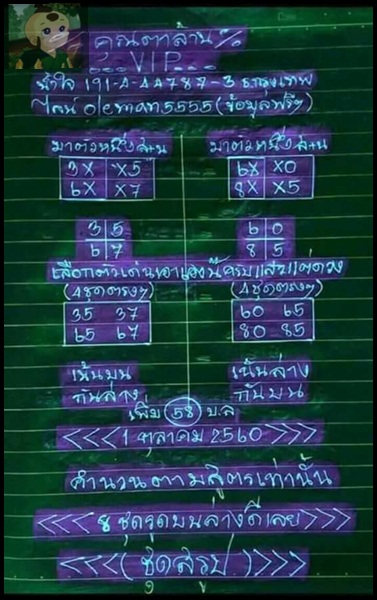 คุณตาล้าน %
VIP
น้ำใจ 191-4-44787-3 ธ.กรุงเทพ
ไลน์ oleman5555 (ข้อมูลฟรีๆ)
มาตัวหนึ่งล่าง มาตัวหนึ่งล่าง
3X X5 6X X0
6X X7 8X X5
3 5 6 0
6 7 8 5
เลือกตัวเด่นเอาเองนะครับ
(4ชุดตรงๆ) (4ชุดตรงๆ)
35 37 60 65
65 67 80 85
เน้นบน เน้นล่าง
กันล่าง กันบน
เพิ่ม 58 บ.ล
<<< 1 ตุลาคม 2560 >>>
คำนวนตามสูตรเท่านั้น
<<< 8 ชุดจุดบนล่างดีเลย >>>
<<< (ชุดสรุป) >>>